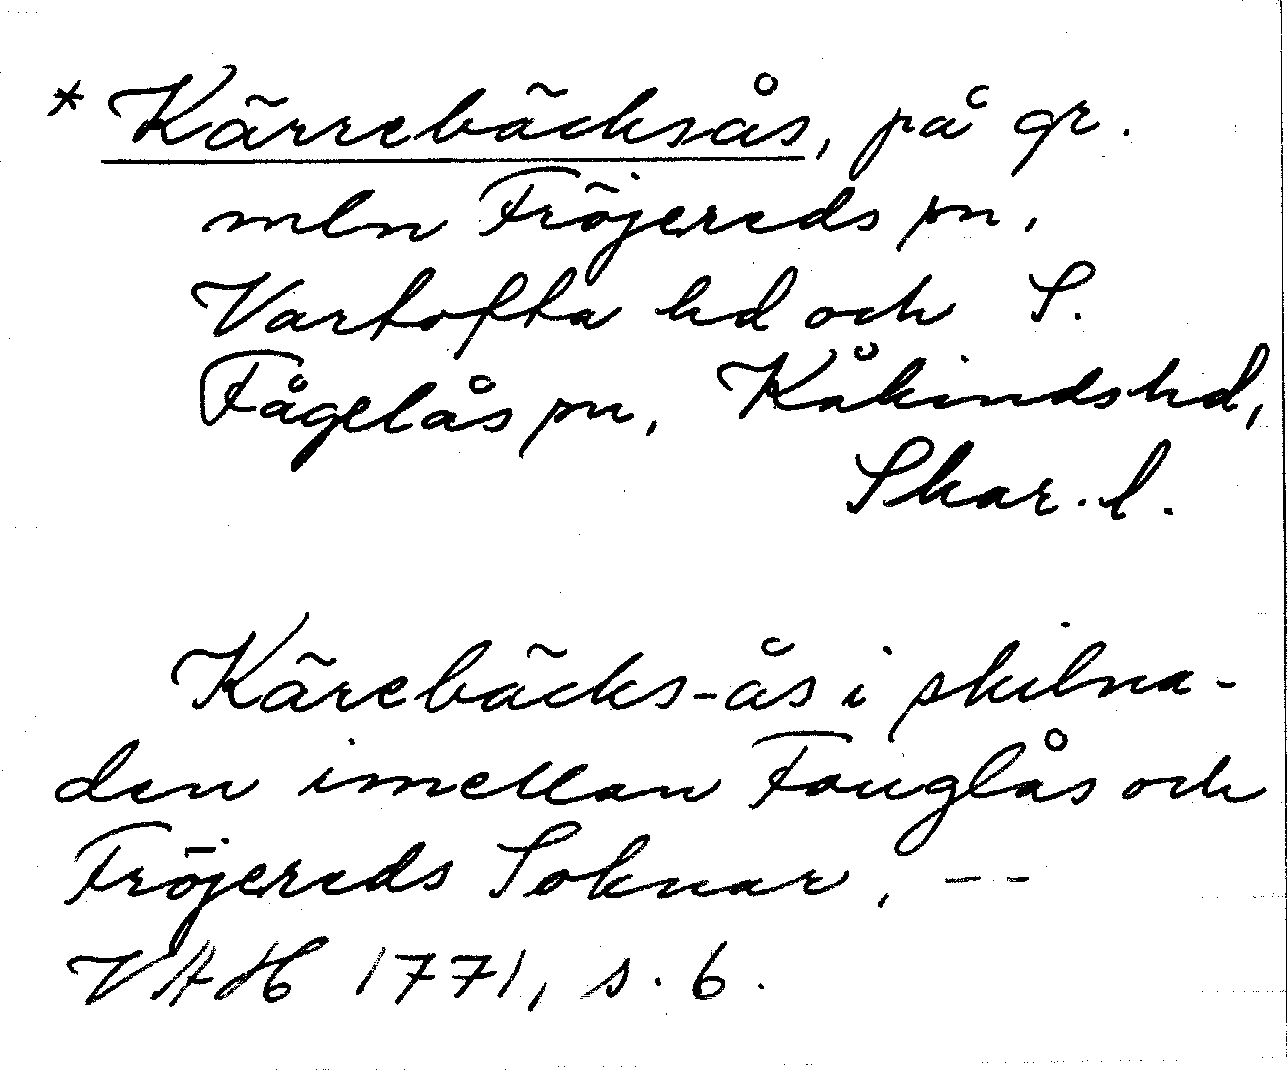 * Kärrebäcksås, på gr.
mln Fröjereds sn,
Vartofta hd och S.
Fågelås sn, Kåkinds hd,
Skar. l.
Kärebäcks-ås i skilna-
den imellan Fouglås och
Fröjereds Soknar, --
VAH 1771, s. 6.